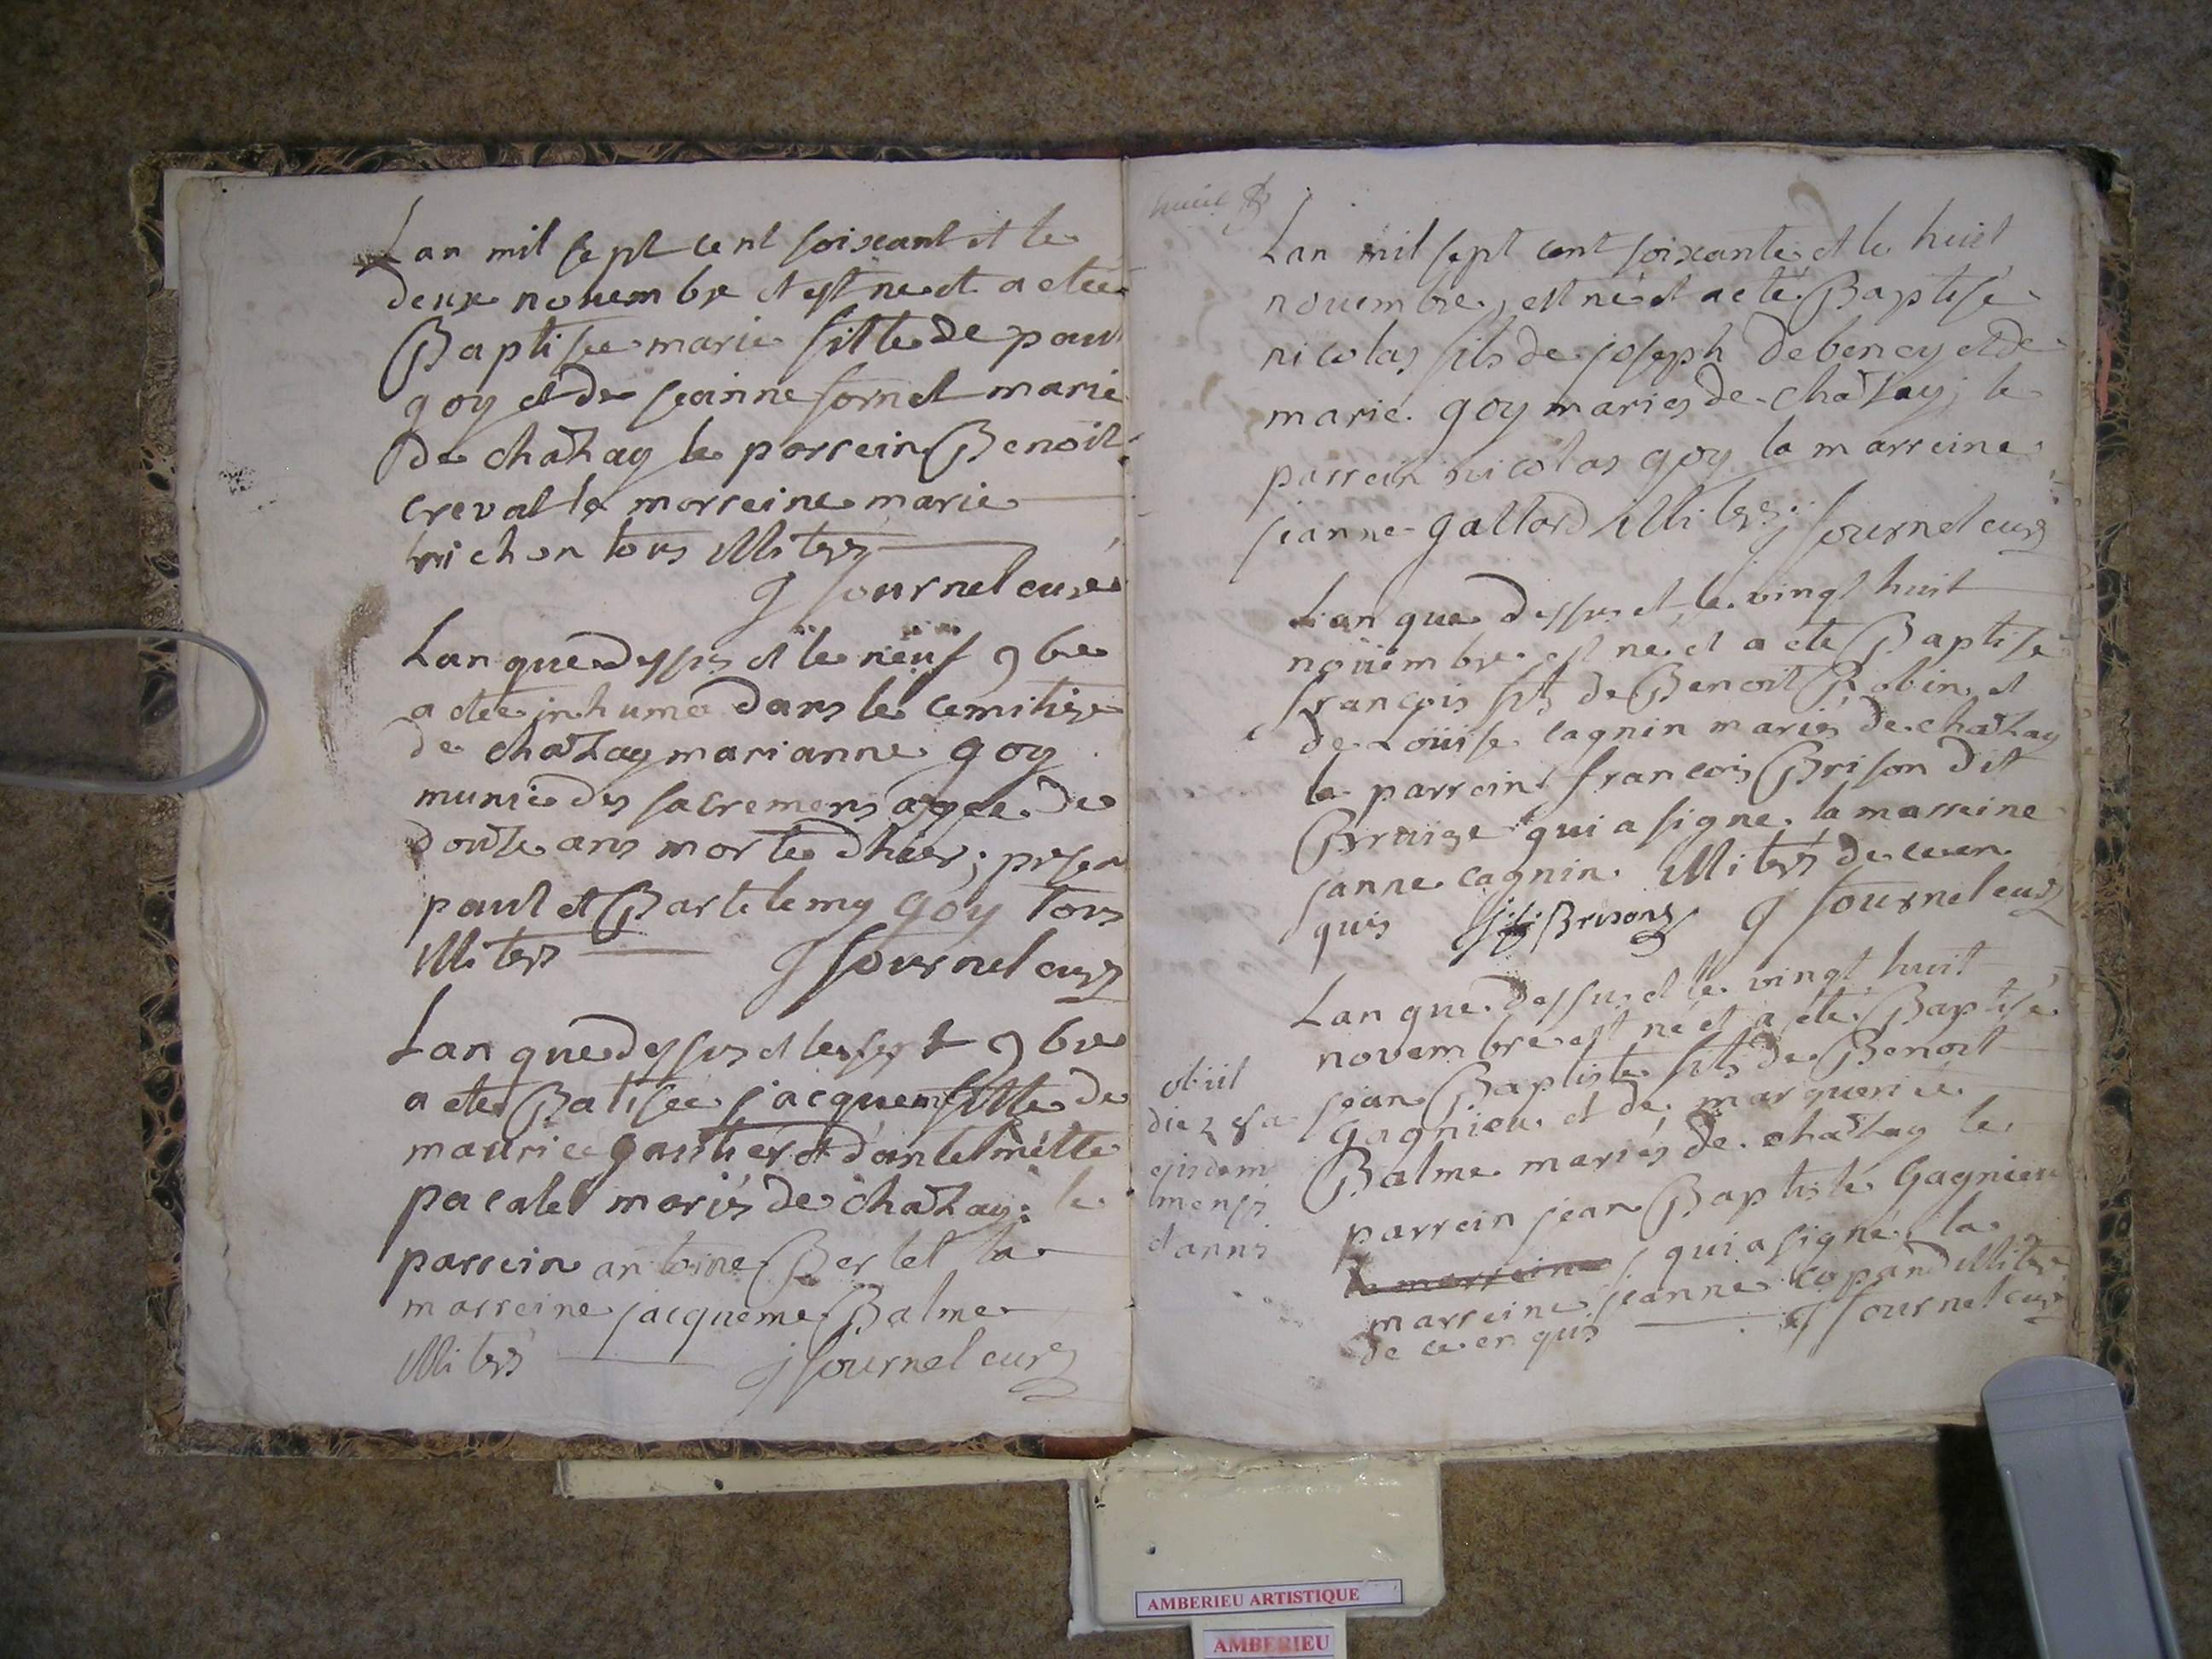 Lan mil sept cent soixant et le
deux novembre et est ne et a etée
Baptisee marie fille de paul
goy et de jeanne fornet marie
de chatZay le parrein Benoit
creval la marreine marie
michon tous illiters
J fournel curé
Lan que dessus et le neuf 9bre
a etée inhumé dans le cemitiere
de chatZay marianne goy
munie des sacremens agee de
douze ans morte dhier; presen
paul et Bartelemy goy tous
illiters J fournel curé
Lan que dessus et le sept 9bre
a ete Batisée jacqueme fille de
maurice gautier et d'antelmette
pacalet mariés de chatZay: le
parrein antoine Bertet la
marreine jacqueme Balme
illiters J fournel curé
huiel
Lan mil sept cent soixante et le huit
novembre, est né et a eté Baptisé
nicolas fils de joseph debeney et de
marie goy maries de chatZay; le
parrein nicolas goy la marreine
jeanne gallard illiters; J fournel curé
Lan que dessus et le vingt huit
novembre est ne et a ete Baptise
françois fils de Benoit Robin et
de Loüise cagnin mariés de chatZay
le parrein francois Brison dit
qui a signe la marreine
janne cagnin illiters de ce en
quis Brison J fournel curé
Lan que dessus et le vingt huit
novembre est né et a été Baptisé
jean Baptiste fils de Benoit
Gagnieu et de marguerite
Balme mariés de chatZay le
parrein jean Baptiste Gagnieu
la marreine qui a signé la
marreine jeanne copard illitere
de ce en quis J fournel curé
obiit
die
ejusdem
mensis
et anni
AMBERIEU ARTISTIQUE
AMBERIEU